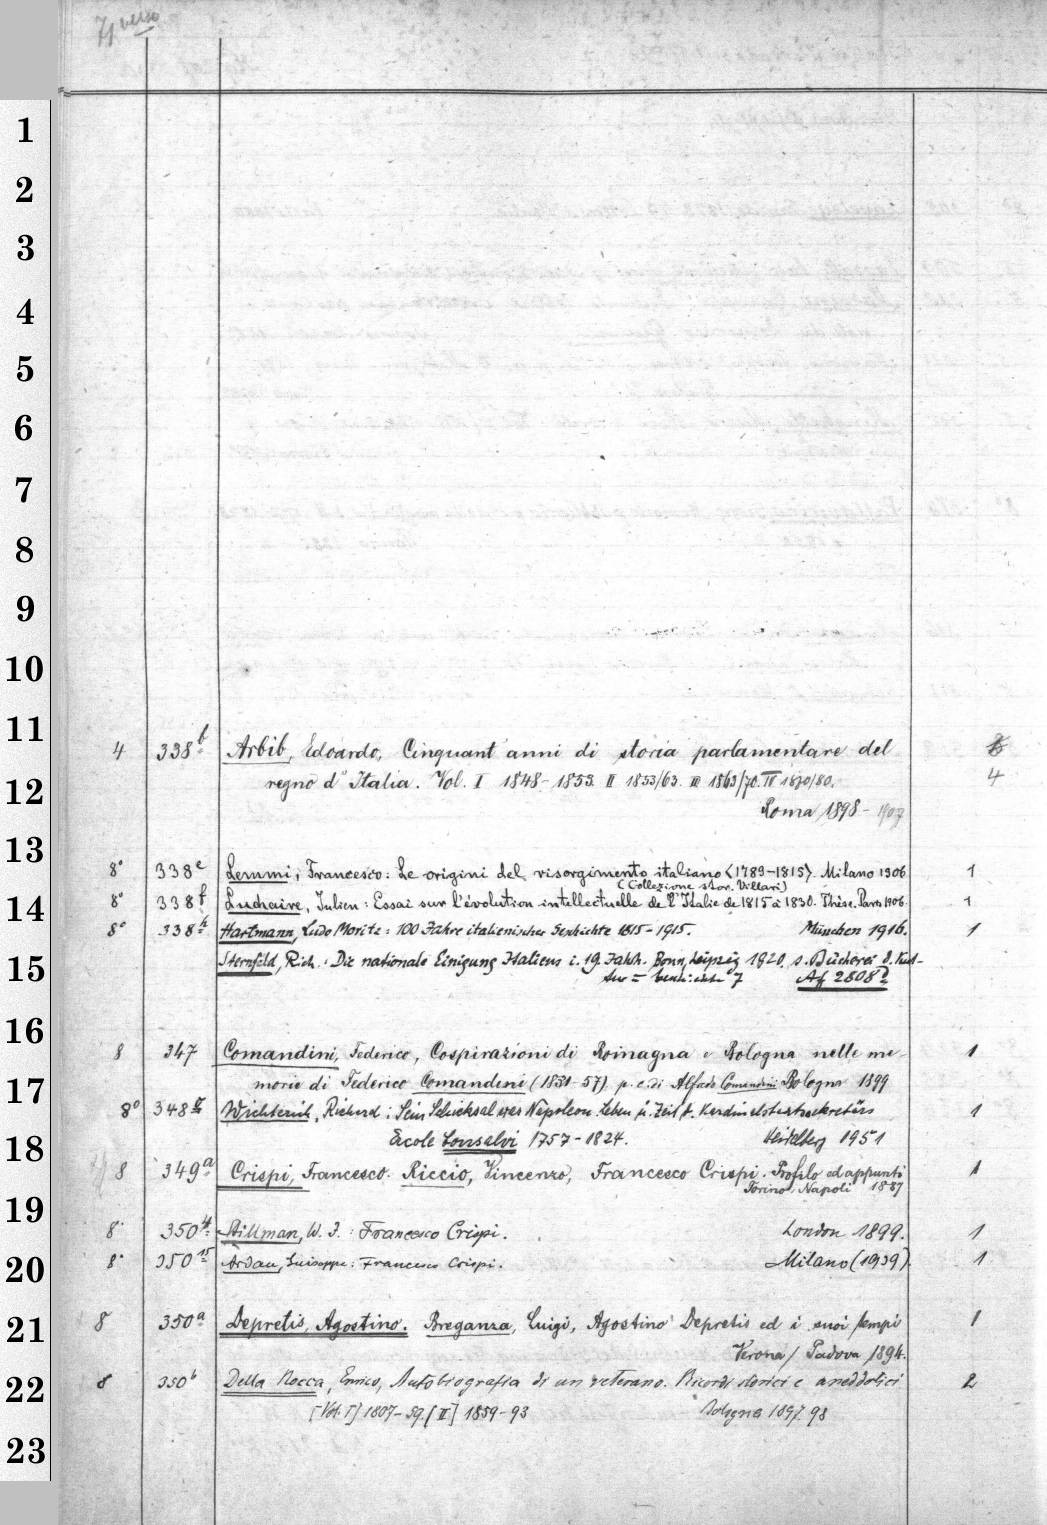 71 verso
1
2
3
4
5
6
7
8
9
10
11
12
13
14
15
16
17
18
19
20
21
22
23
4 338b Arbib, Edoardo, Cinquant'anni di storia parlamentare del
regno d'Italia. Vol. I 1848-1853. II 1853/63. III 1863/70. IV 1870/80. 4
Roma 1898-1907
8° 338e Lemmi, Francesco: Le origini del risorgimento italiano (1789-1815). Milano 1906. 1
(Collezione stor. Villari)
8° 338f Luchaire, Julien: Essai sur l'évolution intellectuelle de l'Italie de 1815 à 1830. Thèse. Paris 1906. 1
8° 338h Hartmann, Ludo Moritz: 100 Jahre italienischer Geschichte 1815-1915. München 1916. 1
Sternfeld, Rich.: Die nationale Einigung Italiens i. 19. Jahh. Bonn, Leipzig 1920. s. Bücherei d. Kul-
Af 2808
8 347 Comandini, Federico, Cospirazioni di Romagna e Bologna nelle me-
morie di Federico Comandini (1831-57) p. c. di Alfredo Comandini Bologna 1899 1
8° 348 Wichterich, Richard: Sein Schicksal war Napoleon. Leben u. Zeit d. Kardinalstaatssekretärs
Ercole Consalvi 1757-1824. Heidelberg 1951 1
8 349a Crispi, Francesco. Riccio, Vincenzo, Francesco Crispi. Profilo ed appunti 1
Torino, Napoli 1887
8° 350 Stillman, W. J.: Francesco Crispi. London 1899. 1
8° 350 15 Ardau, Guiseppe: Francesco Crispi. Milano (1939). 1
8 350a Depretis, Agostino. Breganza, Luigi, Agostino Depretis ed i suoi tempi 1
Verona / Padova 1894.
8 350b Della Rocca, Enrico, Autobiografia di un veterano. Ricordi storici e aneddotici 2
[Vol. I] 1807-59. [II] 1859-93 Bologna 1897. 98